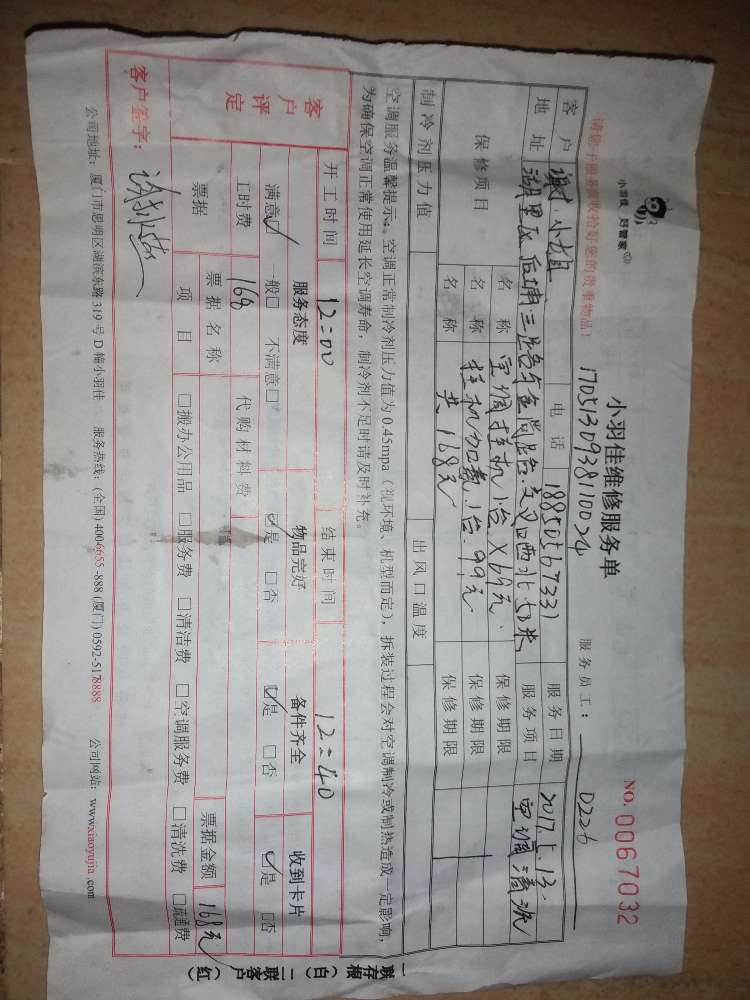 小羽佳 好管家
小羽佳维修服务单
NO. 0067032
请您于服务前收拾好您的贵重物品！
1705130938110024
服务员工： D226
客户 谢小姐 电话 18850567331 服务日期 2017.5.13.
地址 湖里区后埔三 服务项目 空调清洗
保修项目 名称 空调挂机1台×69元. 保修期限
名称 挂机加氟1台.99元 保修期限
名称 共168元 保修期限
制冷剂压力值 出风口温度
空调服务温馨提示：空调正常制冷剂压力值为0.45mpa（视环境、机型而定），拆装过程会对空调制冷或制热造成一定影响，
为确保空调正常使用延长空调寿命，制冷剂不足时请及时补充。
开工时间 12=00 结束时间 12=40
客户评定 服务态度 物品完好 备件齐全 收到卡片
满意☑ 一般□ 不满意□ ☑是 □否 ☑是 □否 ☑是 □否
工时费 168 代购材料费 票据金额 168元
票据 票据名称
项目 □搬办公用品 □服务费 □清洁费 □空调服务费 □清洗费 □疏通费
客户签字：
公司地址：厦门市思明区湖滨东路319号D幢小羽佳 服务热线：(全国)4006655-888 (厦门)0592-5178888 公司网站：www.xiaoyujia.com
一联存根（白） 二联客户（红）